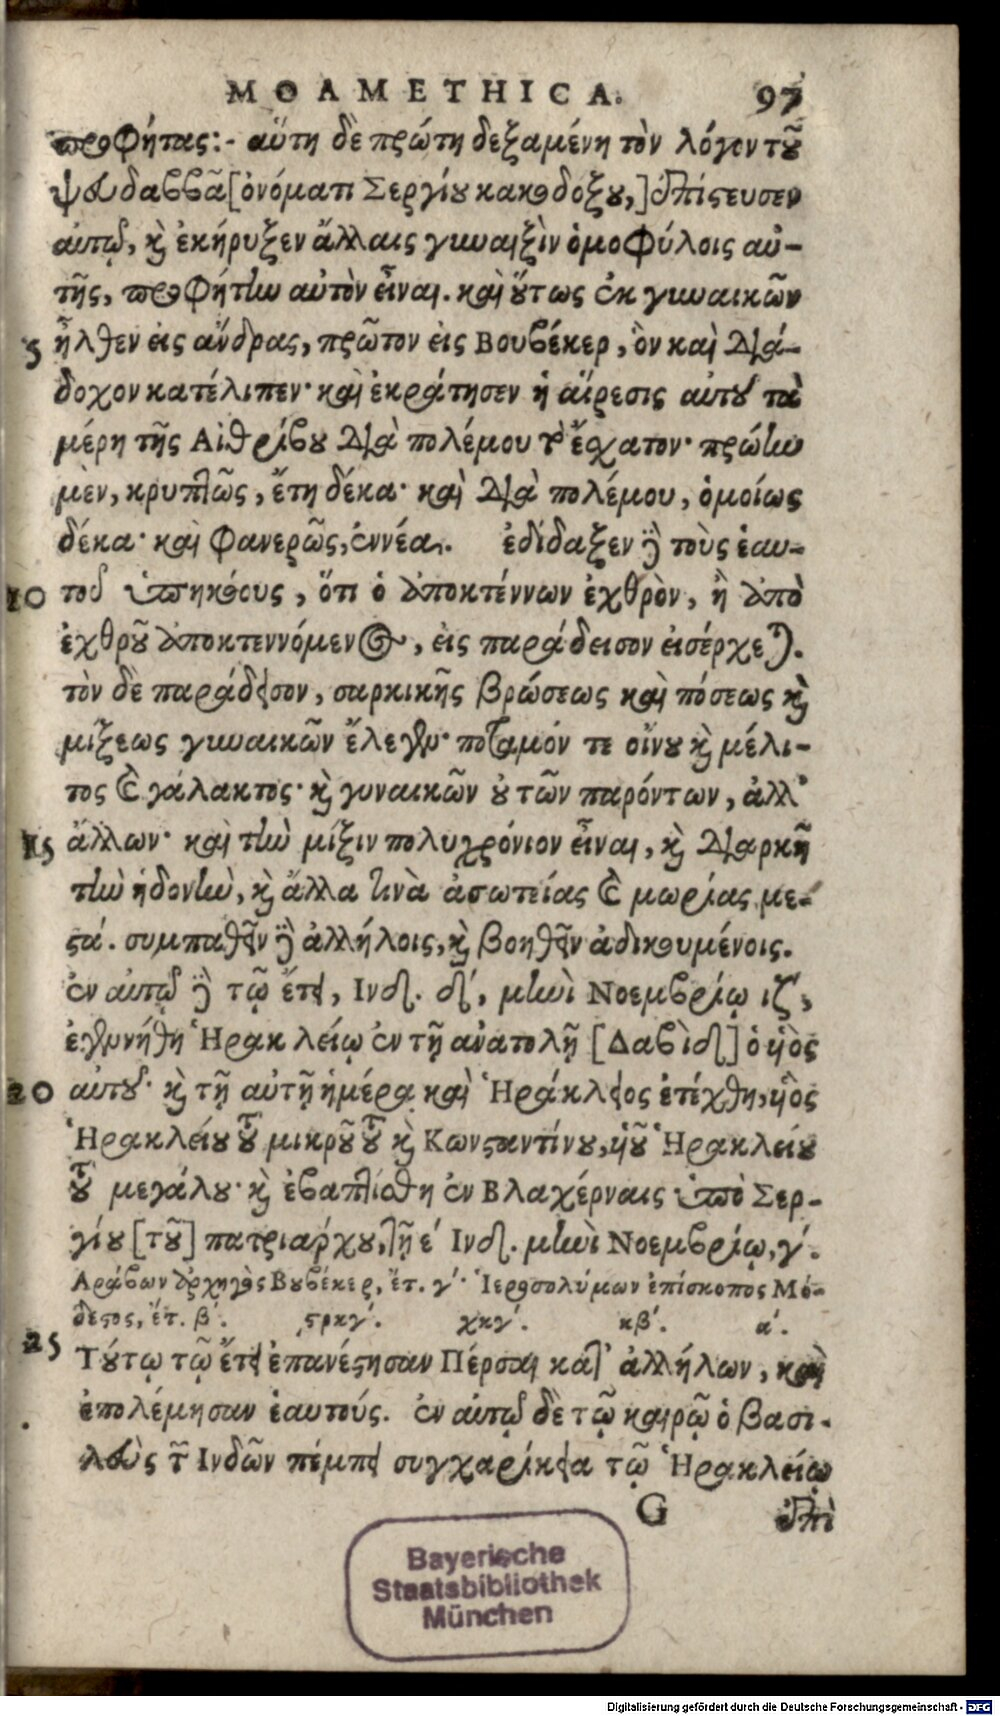 MOAMETHICA. 97
προφήτας:- αὕτη δὲ πρώτη δεξαμένη τὸν λόγον τοῦ
ψευδαββᾶ [ὀνόματι Σεργίου κακοδόξου,] ἐπίστευσεν
αὐτῷ, καὶ ἐκήρυξεν ἄλλαις γυναιξὶν ὁμοφύλοις αὐ-
τῆς, προφήτην αὐτὸν εἶναι. καὶ οὕτως ἐκ γυναικῶν
5 ἦλθεν εἰς ἄνδρας, πρῶτον εἰς Βουβέκερ, ὃν καὶ διά-
δοχον κατέλιπεν· καὶ ἐκράτησεν ἡ αἵρεσις αὐτοῦ τὰ
μέρη τῆς Αἰθρίβου διὰ πολέμου τὸ ἔσχατον· πρώην
μὲν, κρυπτῶς, ἔτη δέκα· καὶ διὰ πολέμου, ὁμοίως
δέκα· καὶ φανερῶς, ἐννέα. ἐδίδαξεν δὲ τοὺς ἑαυ-
10 τοῦ ὑπηκόους, ὅτι ὁ ἀποκτέννων ἐχθρὸν, ἢ ἀπὸ
ἐχθροῦ ἀποκτεννόμενος, εἰς παράδεισον εἰσέρχεται.
τὸν δὲ παράδεισον, σαρκικῆς βρώσεως καὶ πόσεως καὶ
μίξεως γυναικῶν ἔλεγεν· ποταμόν τε οἴνου καὶ μέλι-
τος καὶ γάλακτος· καὶ γυναικῶν οὐ τῶν παρόντων, ἀλλ'
15 ἄλλων· καὶ τὴν μίξιν πολυχρόνιον εἶναι, καὶ διαρκῆ
τὴν ἡδονὴν, καὶ ἄλλα τινὰ ἀσωτείας καὶ μωρίας με-
στά. συμπαθεῖν δὲ ἀλλήλοις, καὶ βοηθεῖν ἀδικουμένοις.
ἐν αὐτῷ δὲ τῷ ἔτει, Ινδ. δ', μηνὶ Νοεμβρίῳ ιζ',
ἐγεννήθη Ἡρακλείῳ ἐν τῇ ἀνατολῇ [Δαβὶδ] ὁ υἱὸς
20 αὐτοῦ· καὶ τῇ αὐτῇ ἡμέρᾳ καὶ Ἡράκλειος ἐτέχθη, υἱὸς
Ἡρακλείου τοῦ μικροῦ τοῦ καὶ Κωνσταντίνου, υἱοῦ Ἡρακλείου
τοῦ μεγάλου· καὶ ἐβαπτίσθη ἐν Βλαχέρναις ὑπὸ Σερ-
γίου [τοῦ] πατριάρχου, τῇ ε' Ινδ. μηνὶ Νοεμβρίῳ, γ'.
Αράβων ἀρχηγὸς Βουβέκερ, ἔτ. γ'· Ἱεροσολύμων ἐπίσκοπος Μό-
δεστος, ἔτ. β'. ͵ϛρκγ'. χκγ'. κβ'. α'.
25 Τούτῳ τῷ ἔτει ἐπανέστησαν Πέρσαι κατ' ἀλλήλων, καὶ
ἐπολέμησαν ἑαυτούς. ἐν αὐτῷ δὲ τῷ καιρῷ ὁ βασι-
λεὺς τῶν Ινδῶν πέμπει συγχαρίκεια τῷ Ἡρακλείῳ
G ἐπὶ
Bayerische
Staatsbibliothek
München
Digitalisierung gefördert durch die Deutsche Forschungsgemeinschaft - DFG